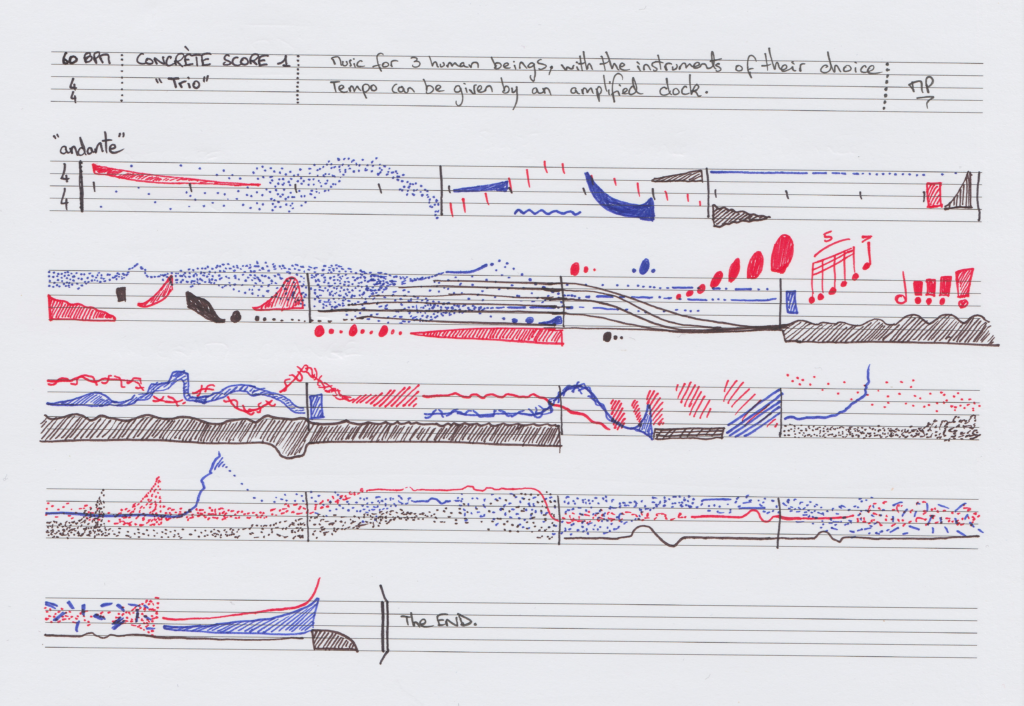 60 BPM CONCRÈTE SCORE 1 Music for 3 human beings, with the instruments of their choice
4 4 "Trio" Tempo can be given by an amplified clock.
"andante"
4
4
5
The END.